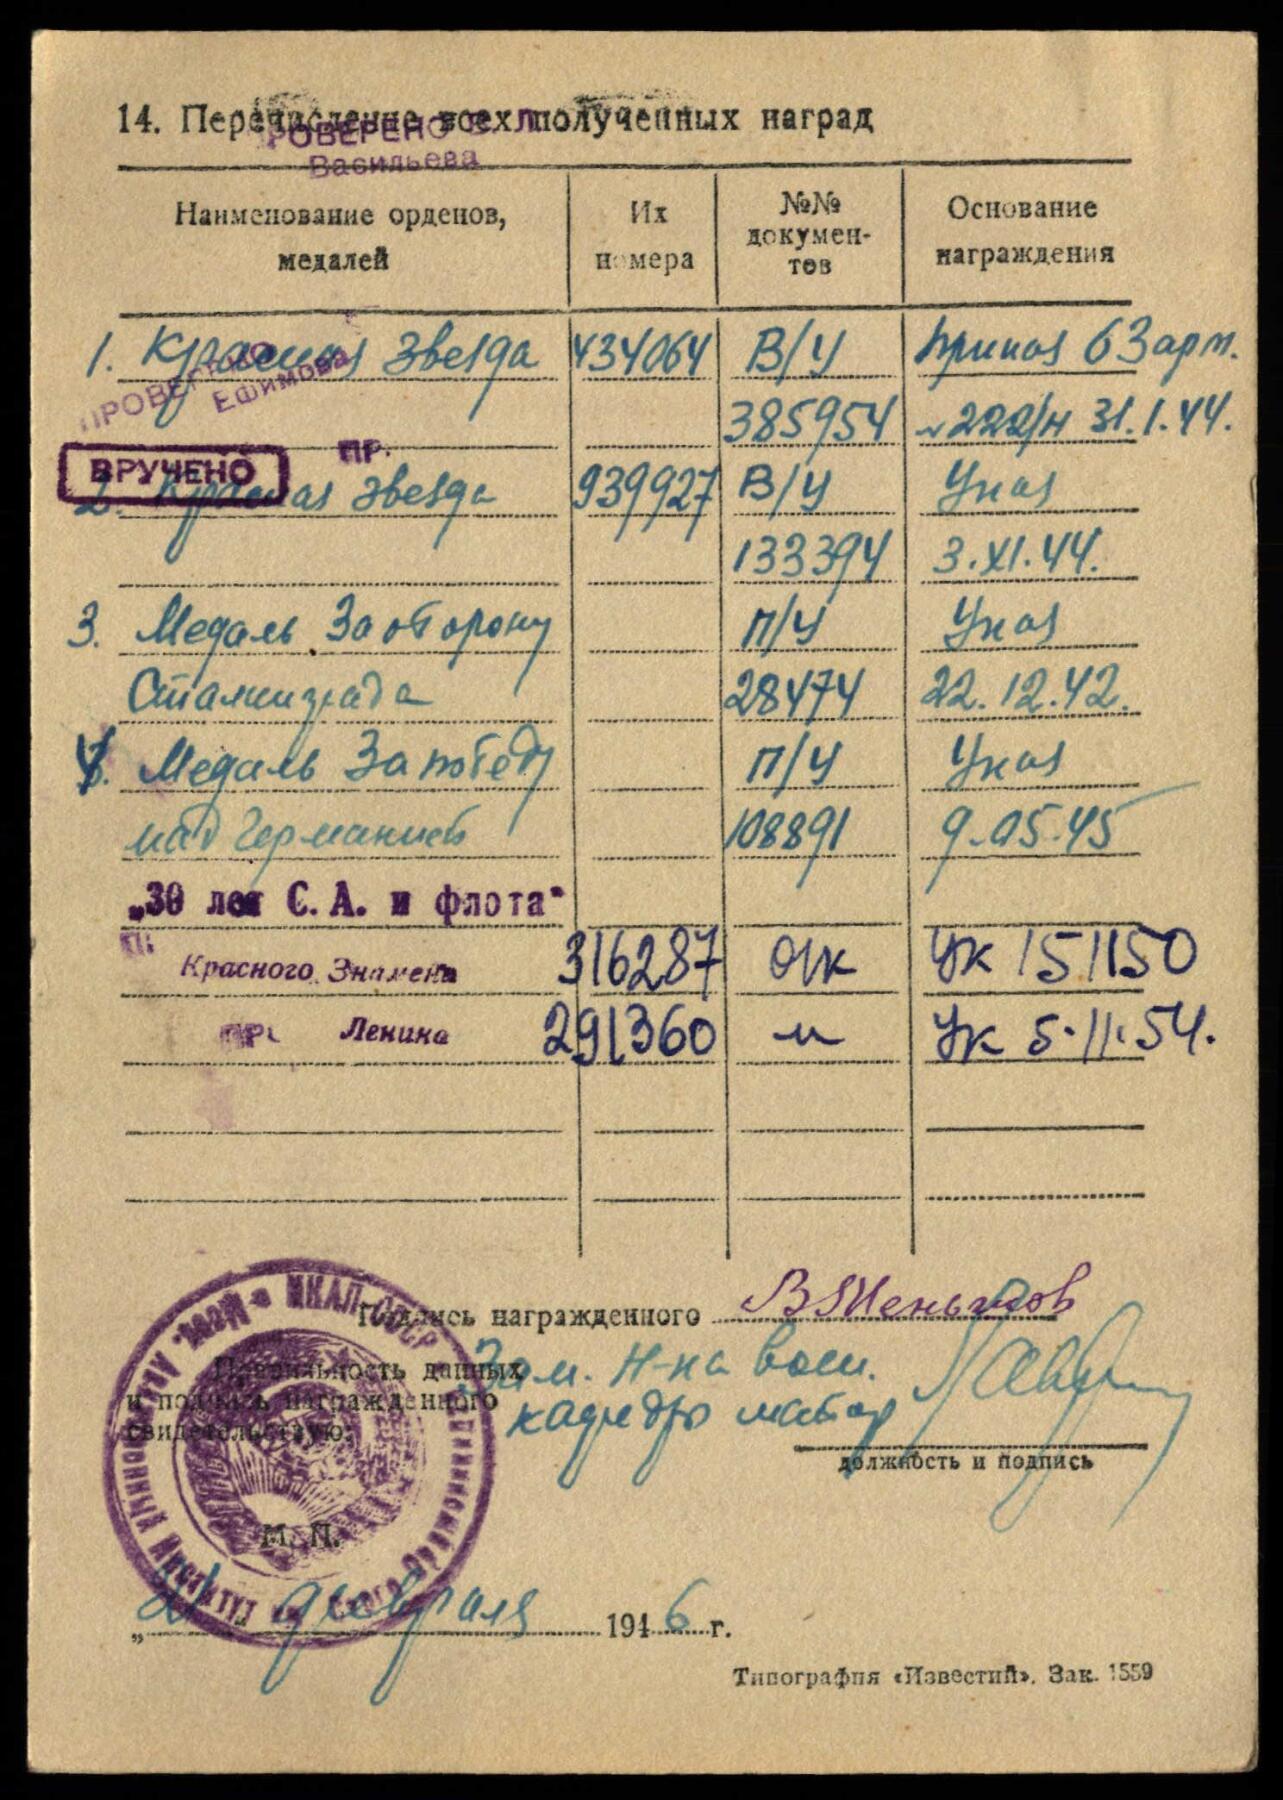 14. Перечисление всех полученных наград
ПРОВЕРЕНО
Васильева
Наименование орденов, медалей
Их номера
№№ докумен-тов
Основание награждения
1. Красная Звезда 434064 В/У Приказ 63 арм.
ПРОВЕРЕНО
Ефимова
385954 №222/н 31.1.44.
ВРУЧЕНО ПР.
2. Красная Звезда 939927 В/У Указ
133394 3.XI.44.
3. Медаль За оборону П/У Указ
Сталинграда 28474 22.12.42.
4. Медаль За победу П/У Указ
над Германией 108891 9.05.45
„30 лет С. А. и флота"
Красного Знамени 316287 О/к УК 15 11 50
ПР. Ленина 291360 УК 5.11.54.
Подпись награжденного В Меньшов
Правильность данных
и подпись награжденного
свидетельствую:
Зам. Н-ка воен.
кафедры майор
должность и подпись
М. П.
„21 февраля 1946 г.
Типография «Известий». Зак. 1559